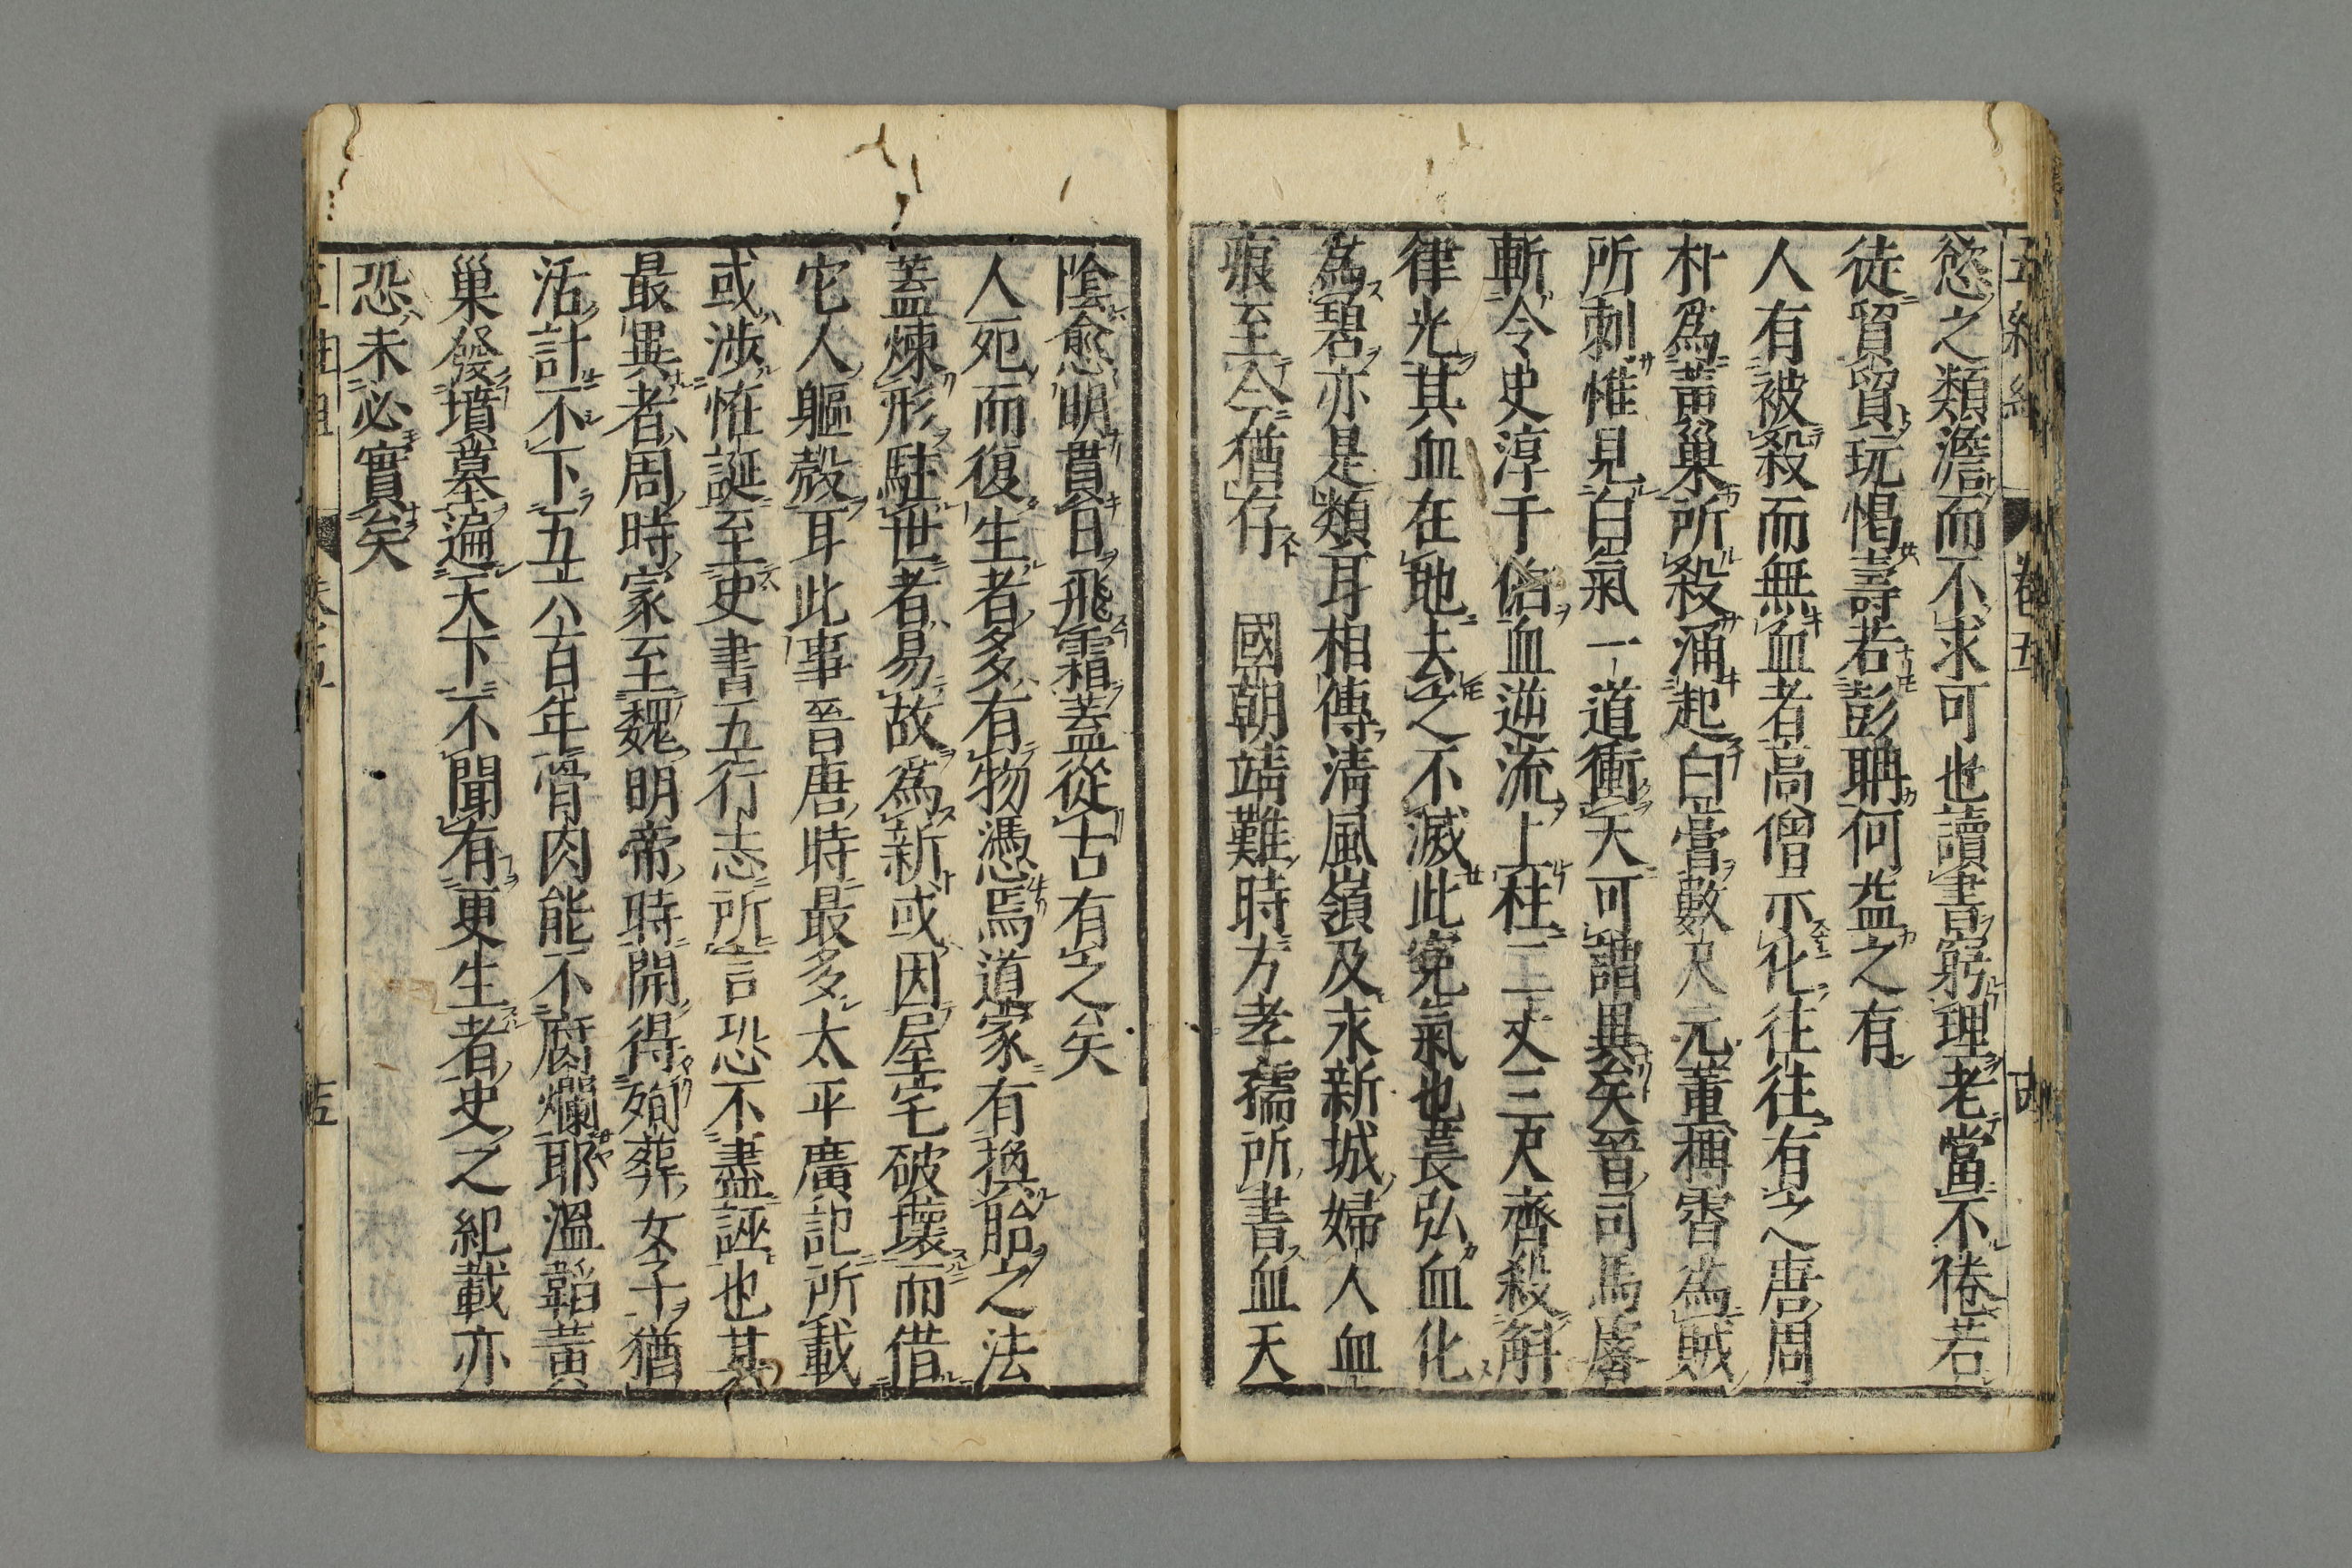 慾之類澹而不求可也讀書窮理老當不倦若
徒貿貿玩愒壽若彭聃何益之有
人有被殺而無血者高僧示化往往有之唐周
朴爲黃巢所殺涌起白膏數尺元董摶霄爲賊
所刺惟見白氣一道衝天可謂異矣晉司馬睿
斬令史淳于伯血逆流上柱二丈三尺齊殺斛
律光其血在地去之不滅此寃氣也萇弘血化
爲碧亦是類耳相傳清風嶺及永新城婦人血
痕至今猶存 國朝靖難時方孝孺所書血天
陰愈明萇日飛霜蓋從古有之矣
人死而復生者多有物憑焉道家有換胎之法
蓋煉形駐世者易故爲新或因屋宅破壞而借
它人軀殼耳此事晉唐時最多太平廣記所載
或涉恠誕至史書五行志所言恐不盡誣也其
最異者周時家至魏明帝時開得殉葬女子猶
活計不下五六百年骨肉能不腐爛耶溫韜黃
巢發墳墓遍天下不聞有更生者史之紀載亦
恐未必實矣
卷五